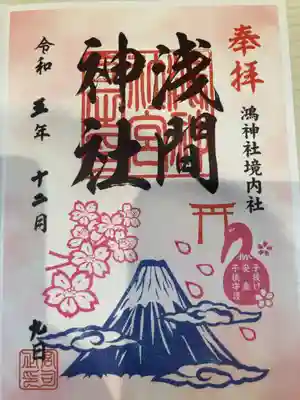 奉拝
鴻神社境内社
浅間
神社
令和五年十二月
九日
子授け
安産
子育守護